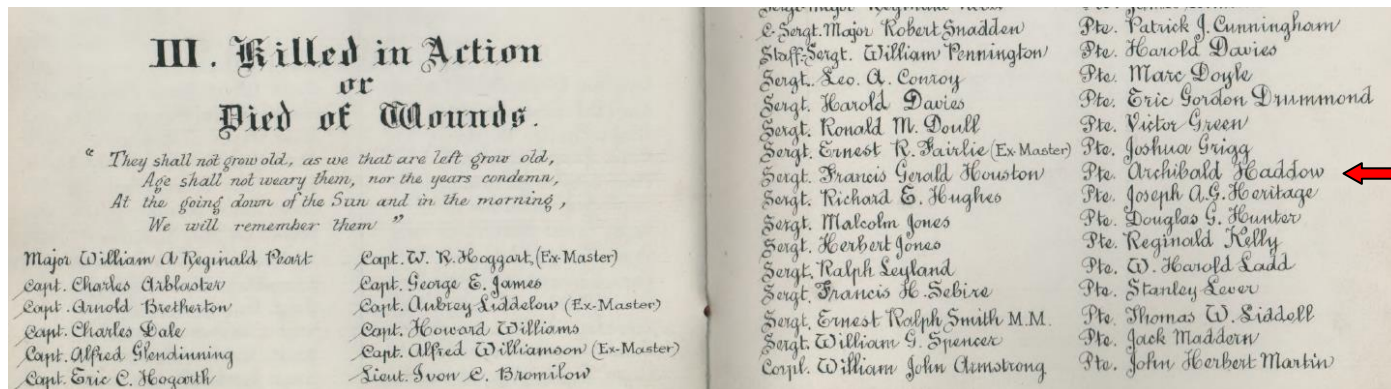 III. Killed in Action
or
Died of Wounds.
"They shall not grow old, as we that are left grow old,
Age shall not weary them, nor the years condemn,
At the going down of the Sun and in the morning,
We will remember them"
Major William A Reginald Peart
Capt. Charles Arblaster
Capt. Arnold Bretherton
Capt. Charles Dale
Capt. Alfred Glendinning
Capt. Eric C. Hogarth
Capt. W. R. Hoggart, (Ex-Master)
Capt. George E. James
Capt. Aubrey Liddelow (Ex-Master)
Capt. Howard Williams
Capt. Alfred Williamson (Ex-Master)
Lieut. Ivon C. Bromilow
C-Sergt. Major Robert Snadden
Staff-Sergt. William Pennington
Sergt. Leo. A. Conroy
Sergt. Harold Davies
Sergt. Ronald M. Doull
Sergt. Ernest R. Fairlie (Ex-Master)
Sergt. Francis Gerald Houston
Sergt. Richard E. Hughes
Sergt. Malcolm Jones
Sergt. Herbert Jones
Sergt. Ralph Leyland
Sergt. Francis H. Sebire
Sergt. Ernest Ralph Smith M.M.
Sergt. William G. Spencer
Corpl. William John Armstrong
Pte. Patrick J. Cunningham
Pte. Harold Davies
Pte. Marc Doyle
Pte. Eric Gordon Drummond
Pte. Victor Green
Pte. Joshua Grigg
Pte. Archibald Haddow
Pte. Joseph A.G. Heritage
Pte. Douglas G. Hunter
Pte. Reginald Kelly
Pte. W. Harold Ladd
Pte. Stanley Lever
Pte. Thomas W. Liddell
Pte. Jack Maddern
Pte. John Herbert Martin